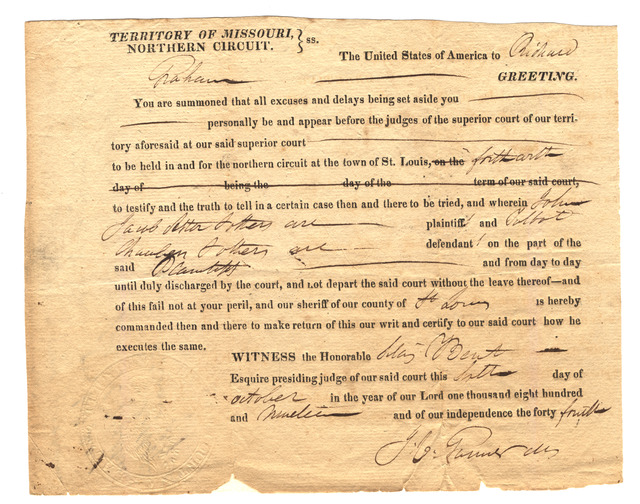 TERRITORY OF MISSOURI, } ss.
NORTHERN CIRCUIT.
The United States of America to Richard
Graham GREETING.
You are summoned that all excuses and delays being set aside you
personally be and appear before the judges of the superior court of our terri-
tory aforesaid at our said superior court
to be held in and for the northern circuit at the town of St. Louis, on the forthwith
day of being the day of the term of our said court,
to testify and the truth to tell in a certain case then and there to be tried, and wherein John
Jacob Astor & others are plaintiffs and
& others are defendants on the part of the
said Plaintiffs and from day to day
until duly discharged by the court, and not depart the said court without the leave thereof—and
of this fail not at your peril, and our sheriff of our county of St Louis is hereby
commanded then and there to make return of this our writ and certify to our said court how he
executes the same.
WITNESS the Honorable Silas Bent
Esquire presiding judge of our said court this day of
October in the year of our Lord one thousand eight hundred
and Nineteen and of our independence the forty fourth